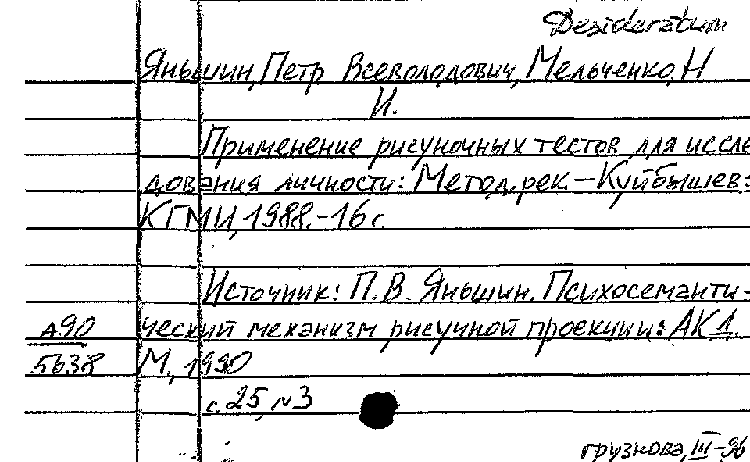 Desideratum
Яньшин, Петр Всеволодович, Мельченко, Н
И.
Применение рисуночных тестов для иссле
дования личности: Метод. рек. – Куйбышев:
КГМИ, 1988. – 16 с.
Источник: П. В. Яньшин. Психосеманти-
ческий механизм рисуночной проекции: АКД.
А90
5638
М., 1990
с. 25, N3
грузнова, III-96